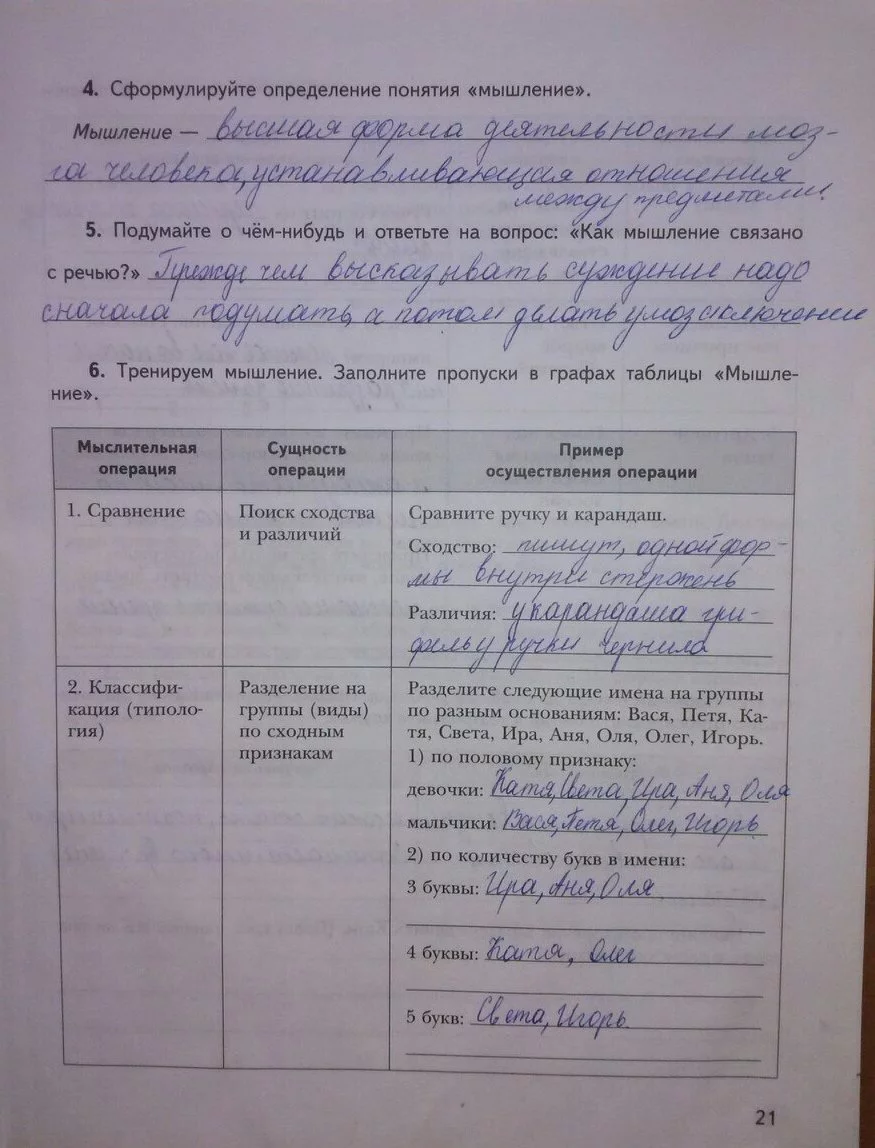 4. Сформулируйте определение понятия «мышление».
Мышление — высшая форма деятельности моз-
га человека, устанавливающая отношения
между предметами.
5. Подумайте о чём-нибудь и ответьте на вопрос: «Как мышление связано
с речью?» Прежде чем высказывать суждение надо
сначала подумать, а потом делать умозаключение
6. Тренируем мышление. Заполните пропуски в графах таблицы «Мышле-
ние».
Мыслительная
операция
Сущность
операции
Пример
осуществления операции
1. Сравнение
Поиск сходства
и различий
Сравните ручку и карандаш.
Сходство: пишут, одной фор-
мы внутри стержень
Различия: у карандаша гри-
фель у ручки чернила
2. Классифи-
кация (типоло-
гия)
Разделение на
группы (виды)
по сходным
признакам
Разделите следующие имена на группы
по разным основаниям: Вася, Петя, Ка-
тя, Света, Ира, Аня, Оля, Олег, Игорь.
1) по половому признаку:
девочки: Катя, Света, Ира, Аня, Оля
мальчики: Вася, Петя, Олег, Игорь
2) по количеству букв в имени:
3 буквы: Ира, Аня, Оля
4 буквы: Катя, Олег
5 букв: Света, Игорь
21